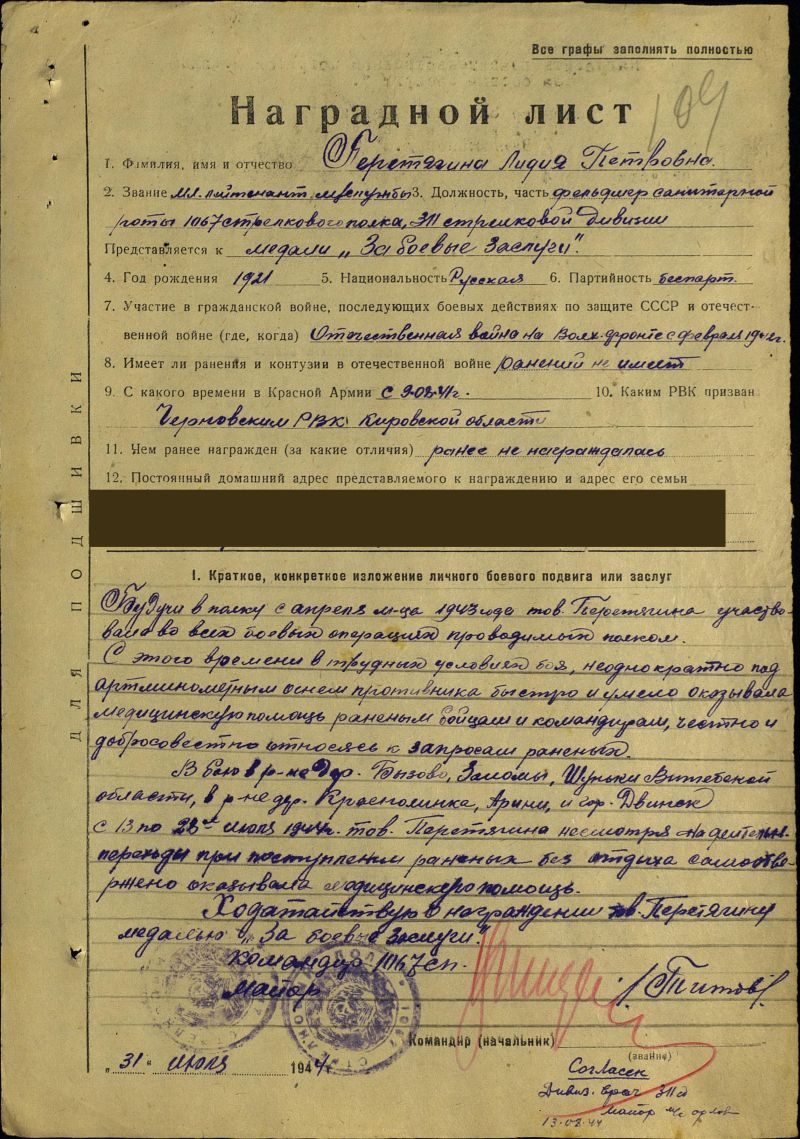 Все графы заполнять полностью
109
Наградной лист
1. Фамилия, имя и отчество Перетягина Лидия Петровна.
2. Звание мл. лейтенант медслужбы 3. Должность, часть фельдшер санитарной
роты 1067 стрелкового полка, 311 стрелковой дивизии
Представляется к медали „За боевые заслуги".
4. Год рождения 1921 5. Национальность Русская 6. Партийность беспарт.
7. Участие в гражданской войне, последующих боевых действиях по защите СССР и отечест-
венной войне (где, когда) Отечественная война на Волх. фронте с февраля 1942г.
8. Имеет ли ранения и контузии в отечественной войне ранений не имеет
9. С какого времени в Красной Армии с 9.08.41г. 10. Каким РВК призван
Черновским РВК Кировской области
11. Чем ранее награжден (за какие отличия) ранее не награждалась
12. Постоянный домашний адрес представляемого к награждению и адрес его семьи
1. Краткое, конкретное изложение личного боевого подвига или заслуг
Будучи в полку с апреля м-ца 1943 года тов. Перетягина участво-
вала во всех боевых операциях проводимых полком.
С этого времени в трудных условиях боя, неоднократно под
артминометным огнем противника быстро и умело оказывала
медицинскую помощь раненым бойцам и командирам, честно и
добросовестно относясь к запросам раненых.
В бою в р-не дер. Бызово, Заломы, Шуньки Витебской
области, в р-не дер. Краснолинка, Арини, и гор. Двинск
с 13 по 28 июля 1944г. тов. Перетягина несмотря на
переходы при поступлении раненых без отдыха самоотве-
ржено оказывала медицинскую помощь.
Ходатайствую о награждении тов. Перетягину
медалью „За боевые заслуги."
Командир 1067 сп.
Майор /Титов/.
Командир (начальник)
(звание)
„31" июля 1944г.
Согласен
Дивиз. врач 311 сд
майор м/с Орлов
13.08.44
ДЛЯ ПОДШИВКИ